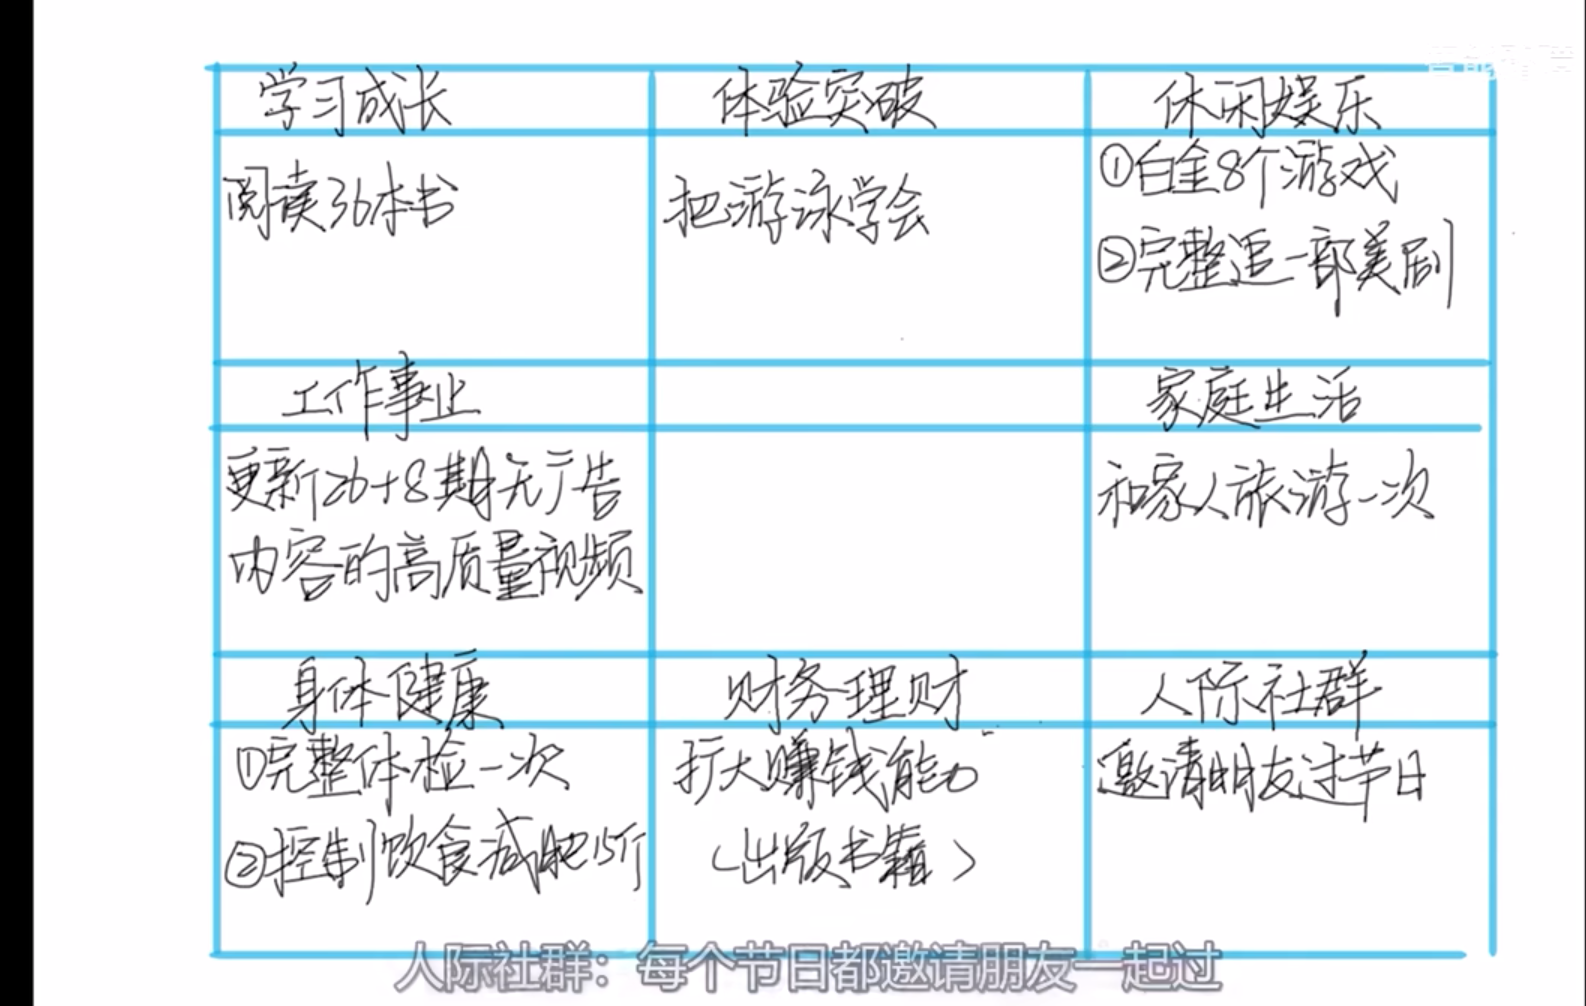 学习成长
体验突破
休闲娱乐
阅读36本书
把游泳学会
①白金8个游戏
②完整追一部美剧
工作事业
家庭生活
更新26+8期无广告
内容的高质量视频
和家人旅游一次
身体健康
财务理财
人际社群
①完整体检一次
②控制饮食减肥15斤
扩大赚钱能力
(出版书籍)
邀请朋友过节日
人际社群：每个节日都邀请朋友一起过